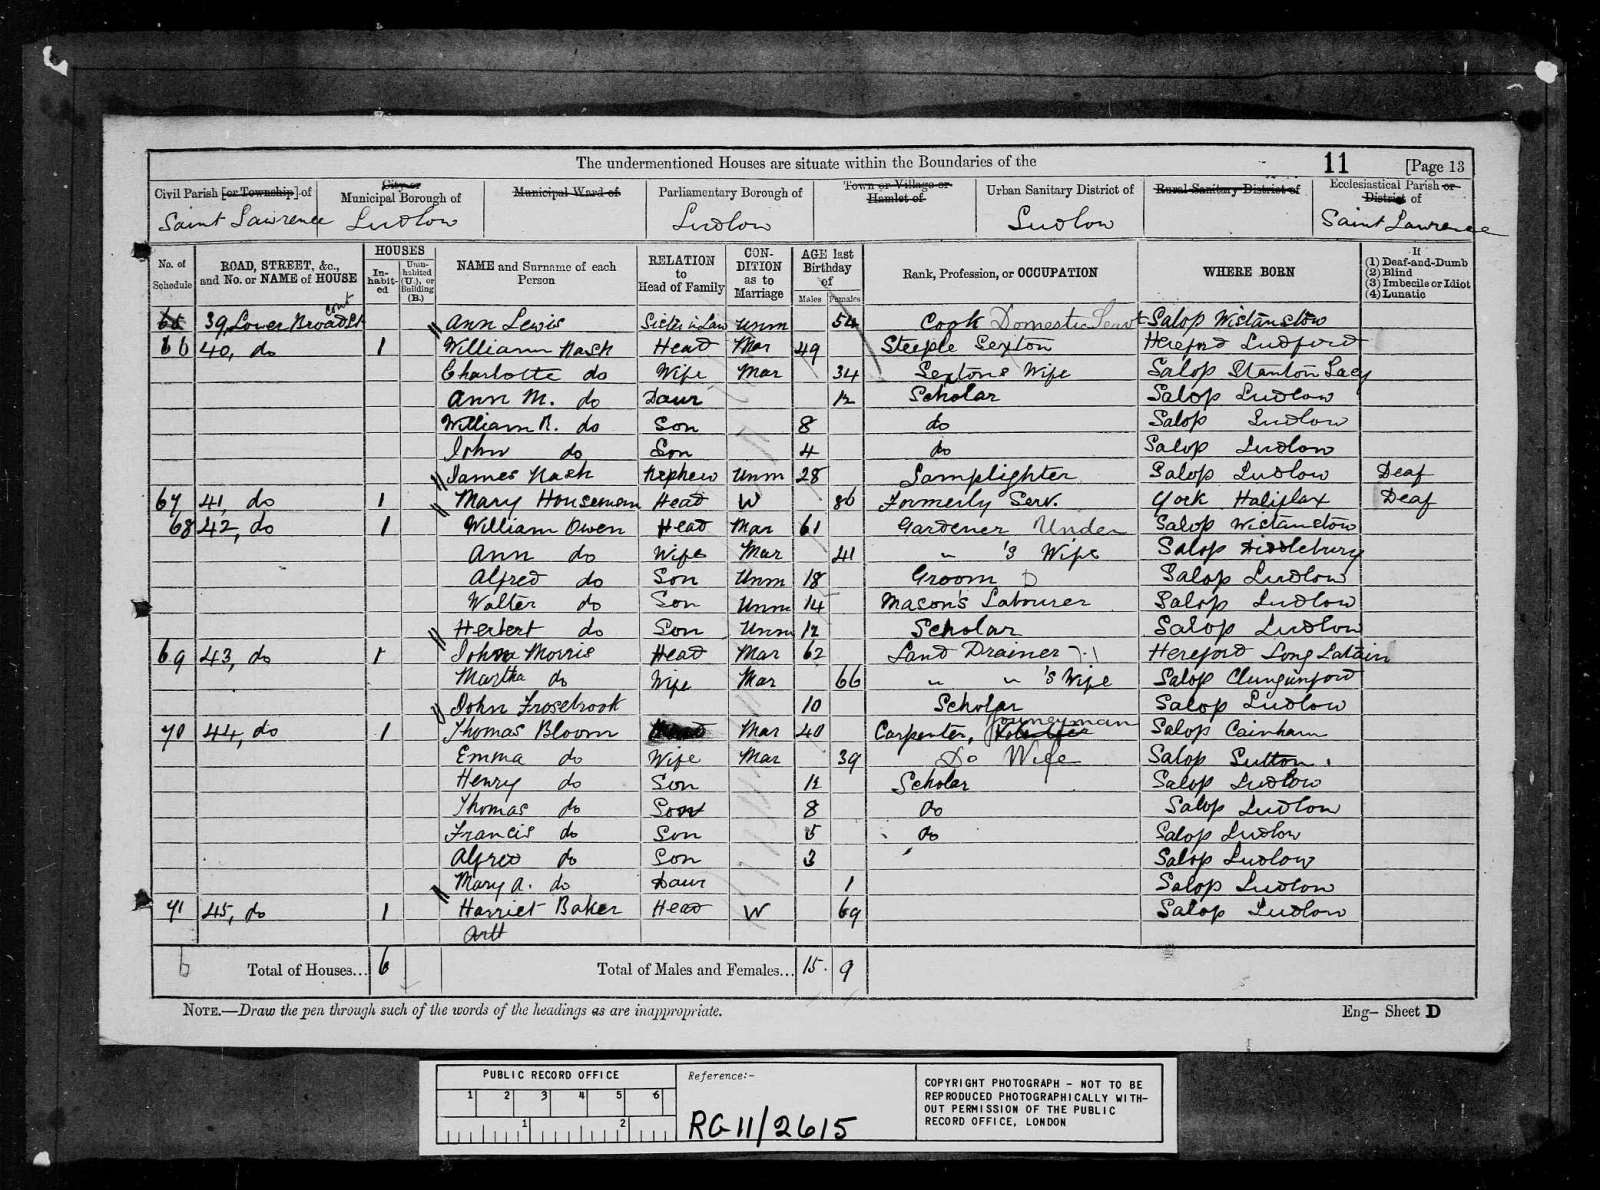 The undermentioned Houses are situate within the Boundaries of the 11 [Page 13
Civil Parish [or Township] of City or Municipal Borough of Municipal Ward of Parliamentary Borough of Town or Village or Hamlet of Urban Sanitary District of Rural Sanitary District of Ecclesiastical Parish or District of
Saint Lawrence Ludlow Ludlow Ludlow Saint Lawrence
No. of Schedule ROAD, STREET, &c., and No. or NAME of HOUSE HOUSES Inhabited Uninhabited (U.), or Building (B.) NAME and Surname of each Person RELATION to Head of Family CONDITION as to Marriage AGE last Birthday of Males Females Rank, Profession, or OCCUPATION WHERE BORN If (1) Deaf-and-Dumb (2) Blind (3) Imbecile or Idiot (4) Lunatic
65 39, Lower Broad St cont Ann Lewis Sister in Law Unm 54 Cook Domestic Servt Salop Wistanstow
66 40, do 1 William Nash Head Mar 49 Steeple Sexton Hereford Ludford
Charlotte do Wife Mar 34 Sextons Wife Salop Stanton Lacy
Ann M. do Daur 12 Scholar Salop Ludlow
William R. do Son 8 do Salop Ludlow
John do Son 4 do Salop Ludlow
James Nash Nephew Unm 28 Lamplighter Salop Ludlow Deaf
67 41, do 1 Mary Houseman Head W 86 Formerly Serv. York Halifax Deaf
68 42, do 1 William Owen Head Mar 61 Gardener Under Salop Wistanstow
Ann do Wife Mar 41 " 's Wife Salop Diddlebury
Alfred do Son Unm 18 Groom D Salop Ludlow
Walter do Son Unm 14 Mason's Labourer Salop Ludlow
Herbert do Son Unm 12 Scholar Salop Ludlow
69 43, do 1 John Morris Head Mar 62 Land Drainer Hereford Long
Martha do Wife Mar 66 " " 's Wife Salop Clungunford
John Frosebrook 10 Scholar Salop Ludlow
70 44, do 1 Thomas Bloom Head Mar 40 Carpenter, Journeyman Salop Cainham
Emma do Wife Mar 39 Do Wife Salop Sutton.
Henry do Son 12 Scholar Salop Ludlow
Thomas do Son 8 do Salop Ludlow
Francis do Son 5 do Salop Ludlow
Alfred do Son 3 Salop Ludlow
Mary A. do Daur 1 Salop Ludlow
71 45, do 1 Harriet Baker Head W 69 Salop Ludlow
6 Total of Houses... 6 Total of Males and Females... 15 9
NOTE.—Draw the pen through such of the words of the headings as are inappropriate. Eng— Sheet D
PUBLIC RECORD OFFICE
1 2 3 4 5 6
1 2
Reference:-
RG 11/2615
COPYRIGHT PHOTOGRAPH - NOT TO BE
REPRODUCED PHOTOGRAPHICALLY WITH-
OUT PERMISSION OF THE PUBLIC
RECORD OFFICE, LONDON